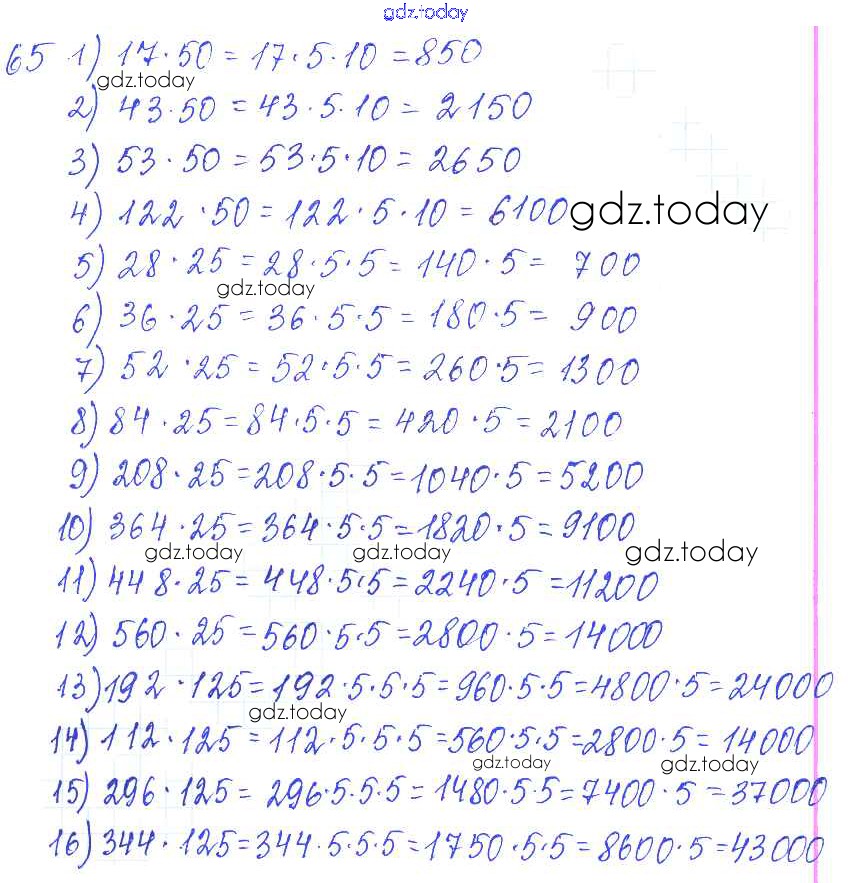 gdz.today
65 1) 17·50 = 17·5·10 = 850
gdz.today
2) 43·50 = 43·5·10 = 2150
3) 53·50 = 53·5·10 = 2650
4) 122·50 = 122·5·10 = 6100 gdz.today
5) 28·25 = 28·5·5 = 140·5 = 700
gdz.today
6) 36·25 = 36·5·5 = 180·5 = 900
7) 52·25 = 52·5·5 = 260·5 = 1300
8) 84·25 = 84·5·5 = 420·5 = 2100
9) 208·25 = 208·5·5 = 1040·5 = 5200
10) 364·25 = 364·5·5 = 1820·5 = 9100
gdz.today gdz.today gdz.today
11) 448·25 = 448·5·5 = 2240·5 = 11200
12) 560·25 = 560·5·5 = 2800·5 = 14000
13) 192·125 = 192·5·5·5 = 960·5·5 = 4800·5 = 24000
gdz.today
14) 112·125 = 112·5·5·5 = 560·5·5 = 2800·5 = 14000
gdz.today gdz.today
15) 296·125 = 296·5·5·5 = 1480·5·5 = 7400·5 = 37000
16) 344·125 = 344·5·5·5 = 1750·5·5 = 8600·5 = 43000